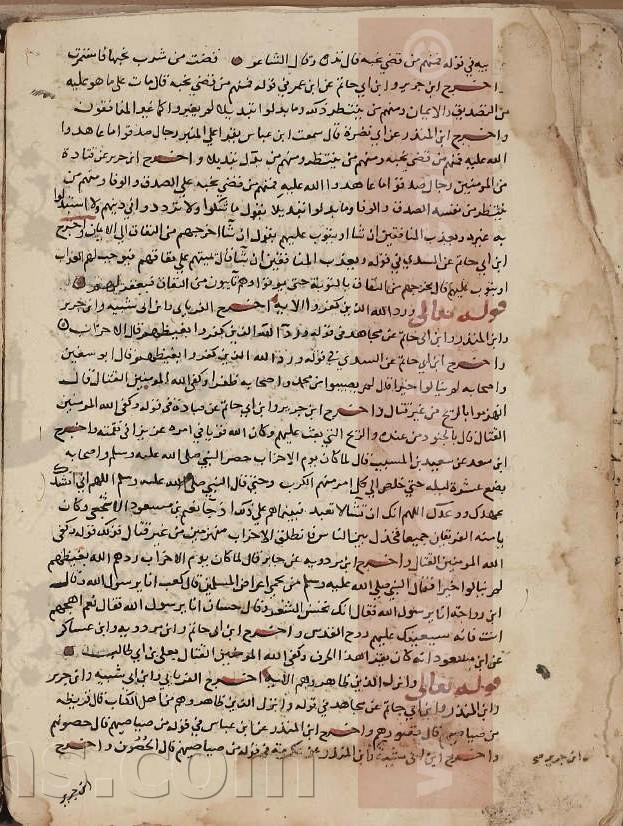 به في قوله فمنهم من قضى نحبه قال نذره وقال الشاعر قضت من يثرب نحبها فاستمرت
واخرج ابن جرير وابن ابي حاتم عن ابن عمر في قوله فمنهم من قضى نحبه قال مات على ما هو عليه
من التصديق والايمان ومنهم من ينتظر ذلك وما بدلوا تبديلا لم يغيروا كما غير المنافقون
واخرج ابن المنذر عن ابي نضرة قال سمعت ابن عباس يقرا على المنبر رجال صدقوا ما عاهدوا
الله عليه فمنهم من قضى نحبه ومنهم من ينتظر ومنهم من بدل تبديلا واخرج ابن جرير عن قتادة
من المومنين رجال صدقوا ما عاهدوا الله عليه فمنهم من قضى نحبه على الصدق والوفا ومنهم من
ينتظر من نفسه الصدق والوفا وما بدلوا تبديلا يقول ما شكوا ولا ترددوا في دينهم ولا استبدلوا
به غيره ويعذب المنافقين ان شا او يتوب عليهم يقول ان شا اخرجهم من النفاق الى الايمان واخرج
ابن ابي حاتم عن السدي في قوله ويعذب المنافقين ان شا قال يميتهم على نفاقهم فيوجب لهم العذاب
او يتوب عليهم قال يخرجهم من النفاق بالتوبة حتى يموتوا وهم تايبون من النفاق فيغفر لهم
قوله تعالى ورد الله الذين كفروا الاية اخرج الفريابي وابن ابي شيبه وابن جرير
وابن المنذر وابن ابي حاتم عن مجاهد في قوله ورد الله الذين كفروا بغيظهم قال الاحزاب
واخرج ابن ابي حاتم عن السدي في قوله ورد الله الذين كفروا بغيظهم قال ابو سفين
واصحابه لم ينالوا خيرا قال لم يصيبوا من محمد واصحابه ظفرا وكفى الله المومنين القتال قال
انهزموا بالريح من غير قتال واخرج ابن جرير وابن ابي حاتم عن قتادة في قوله وكفى الله المومنين
القتال قال بالجنود من عنده والريح التي بعث عليهم وكان الله قويا في امره عزيزا في نقمته واخرج
ابن سعد عن سعيد بن المسيب قال لما كان يوم الاحزاب حصر النبي صلى الله عليه وسلم واصحابه
بضع عشرة ليلة حتى خلص الى كل امرء منهم الكرب وحتى قال النبي صلى الله عليه وسلم اللهم اني انشدك
عهدك ووعدك اللهم انك ان تشا لا تعبد فبينما هم على ذلك اذ جاء نعيم بن مسعود الاشجعي وكان
يامنه الفريقان جميعا فخذل بين الناس فانطلق الاحزاب منهزمين من غير قتال فذلك قوله وكفى
الله المومنين القتال واخرج ابن مردويه عن جابر قال لما كان يوم الاحزاب ردهم الله بغيظهم
لم ينالوا خيرا فقال النبي صلى الله عليه وسلم من يحمي اعراض المسلمين قال كعب انا يرسول الله وقال
ابن رواحة انا يرسول الله فقال انك تحسن الشعر وقال حسان انا يرسول الله فقال نعم اهجهم
انت فانه سيعينك عليهم روح القدس واخرج ابن ابي حاتم وابن مردويه وابن عساكر
عن ابن مسعود انه كان يقرا هذا الحرف وكفى الله المومنين القتال بعلي بن ابي طالب
قوله تعالى وانزل الذين ظاهروهم الاية اخرج الفريابي وابن ابي شيبه وابن جرير
وابن المنذر وابن ابي حاتم عن مجاهد في قوله وانزل الذين ظاهروهم من اهل الكتاب قال قريظه
من صياصيهم قال قصورهم واخرج ابن المنذر عن ابن عباس في قوله من صياصيهم قال حصونهم
واخرج ابن ابي شيبة وابن المنذر عن عكرمة في قوله من صياصيهم قال الحصون واخرج
وابن جرير صح
ابن جرير
ms.com